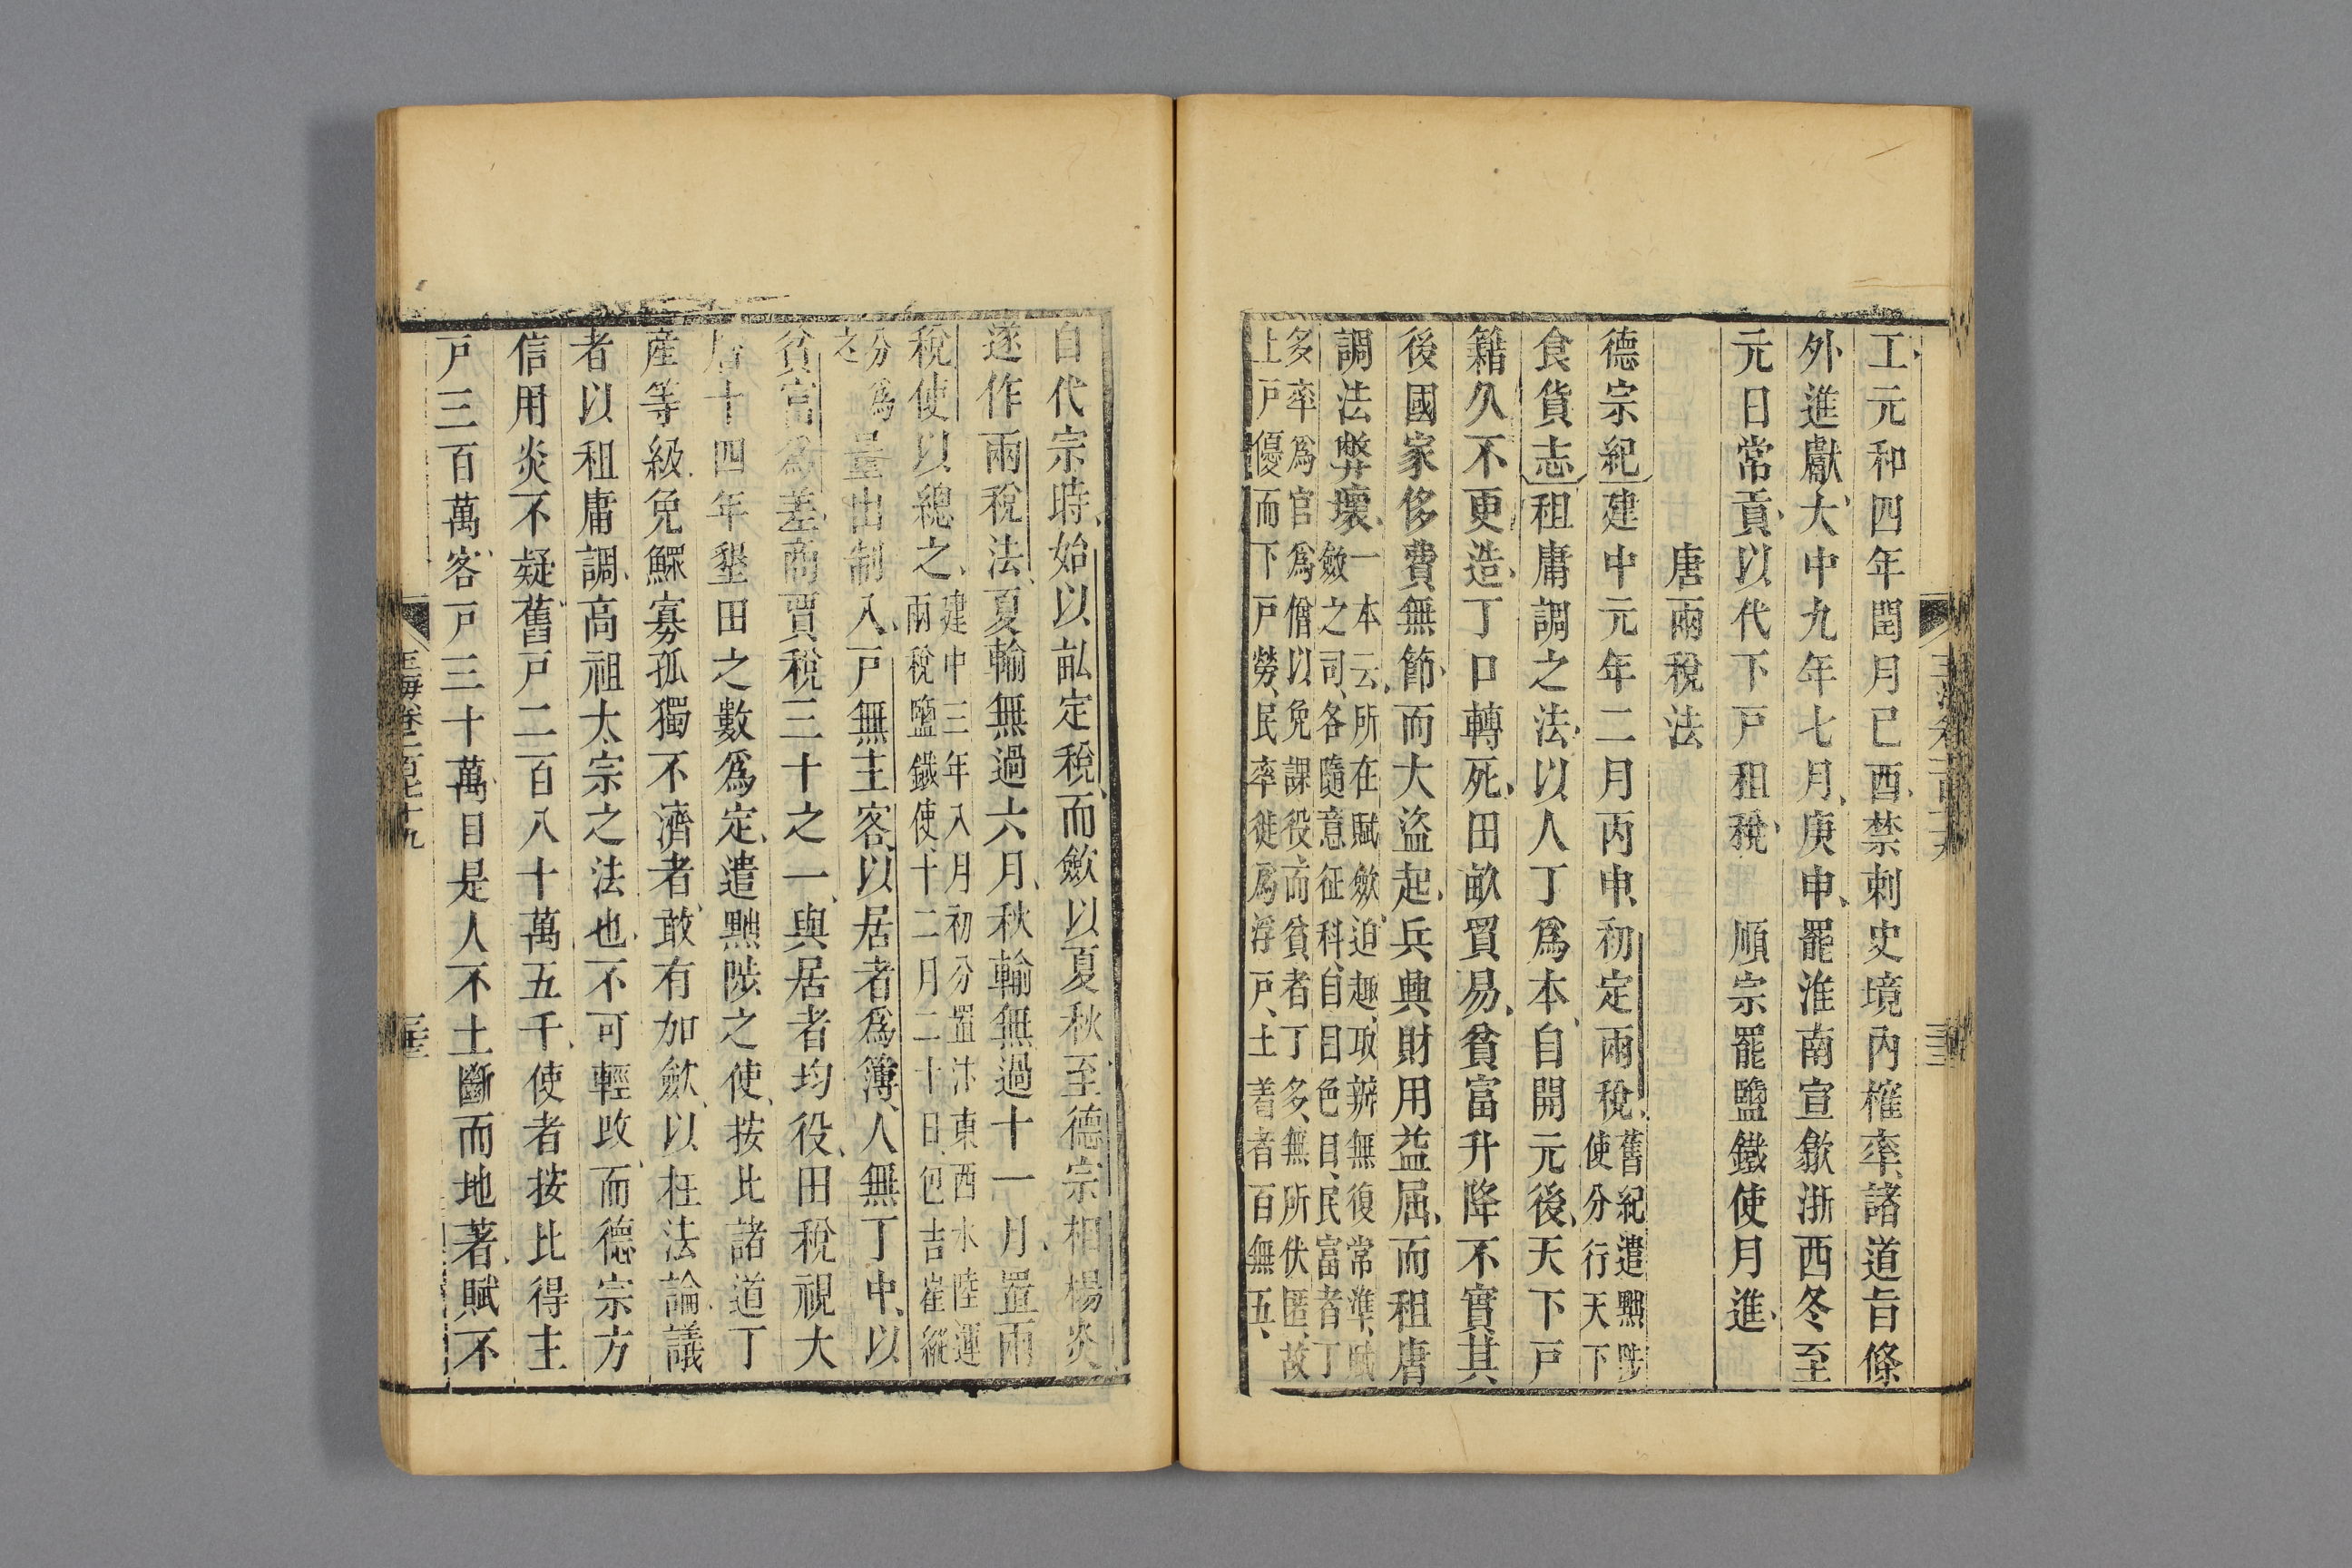 工元和四年閏月己酉禁刺史境內榷率諸道旨條
外進獻大中九年七月庚申罷淮南宣歙浙西冬至
元日常貢以代下戸租稅　順宗罷鹽鐵使月進
唐兩稅法
德宗紀建中元年二月丙申初定兩稅舊紀遣黜陟使分行天下
食貨志租庸調之法以人丁爲本自開元後天下戸
籍久不更造丁口轉死田畝貿易貧富升降不實其
後國家侈費無節而大盜起兵興財用益屈而租庸
調法弊壞一本云所在賦斂迫趣取辦無復常準賦斂之司各隨意征科自目色目民富者丁
多率爲官爲僧以免課役而貧者丁多無所伏匿故上戸優而下戸勞民率徙爲浮戸土著者百無五
自代宗時始以畝定稅而斂以夏秋至德宗相楊炎
遂作兩稅法夏輸無過六月秋輸無過十一月置兩
稅使以總之建中三年八月初分置汴東西水陸運兩稅鹽鐵使十二月二十日包佶崔縱
分爲之量出制入戸無主客以居者爲簿人無丁中以
貧富爲差商賈稅三十之一與居者均役田稅視大
曆十四年墾田之數爲定遣黜陟之使按比諸道丁
產等級免鰥寡孤獨不濟者敢有加斂以枉法論議
者以租庸調高祖太宗之法也不可輕改而德宗方
信用炎不疑舊戸二百八十萬五千使者按比得主
戸三百萬客戸三十萬自是人不土斷而地著賦不
玉海卷一百七十九